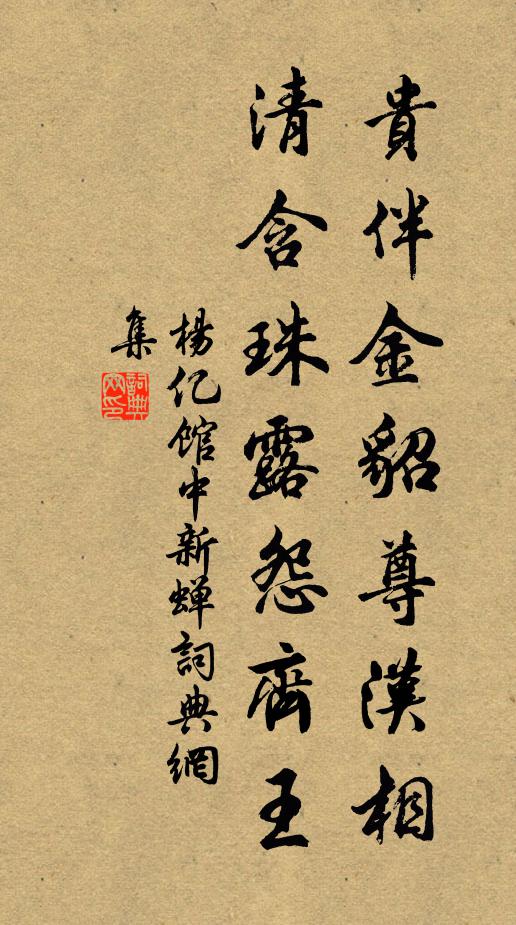 貴伴金貂尊漢相
清含珠露怨齊王
楊亿館中新蟬詞典網
集
詞典网印